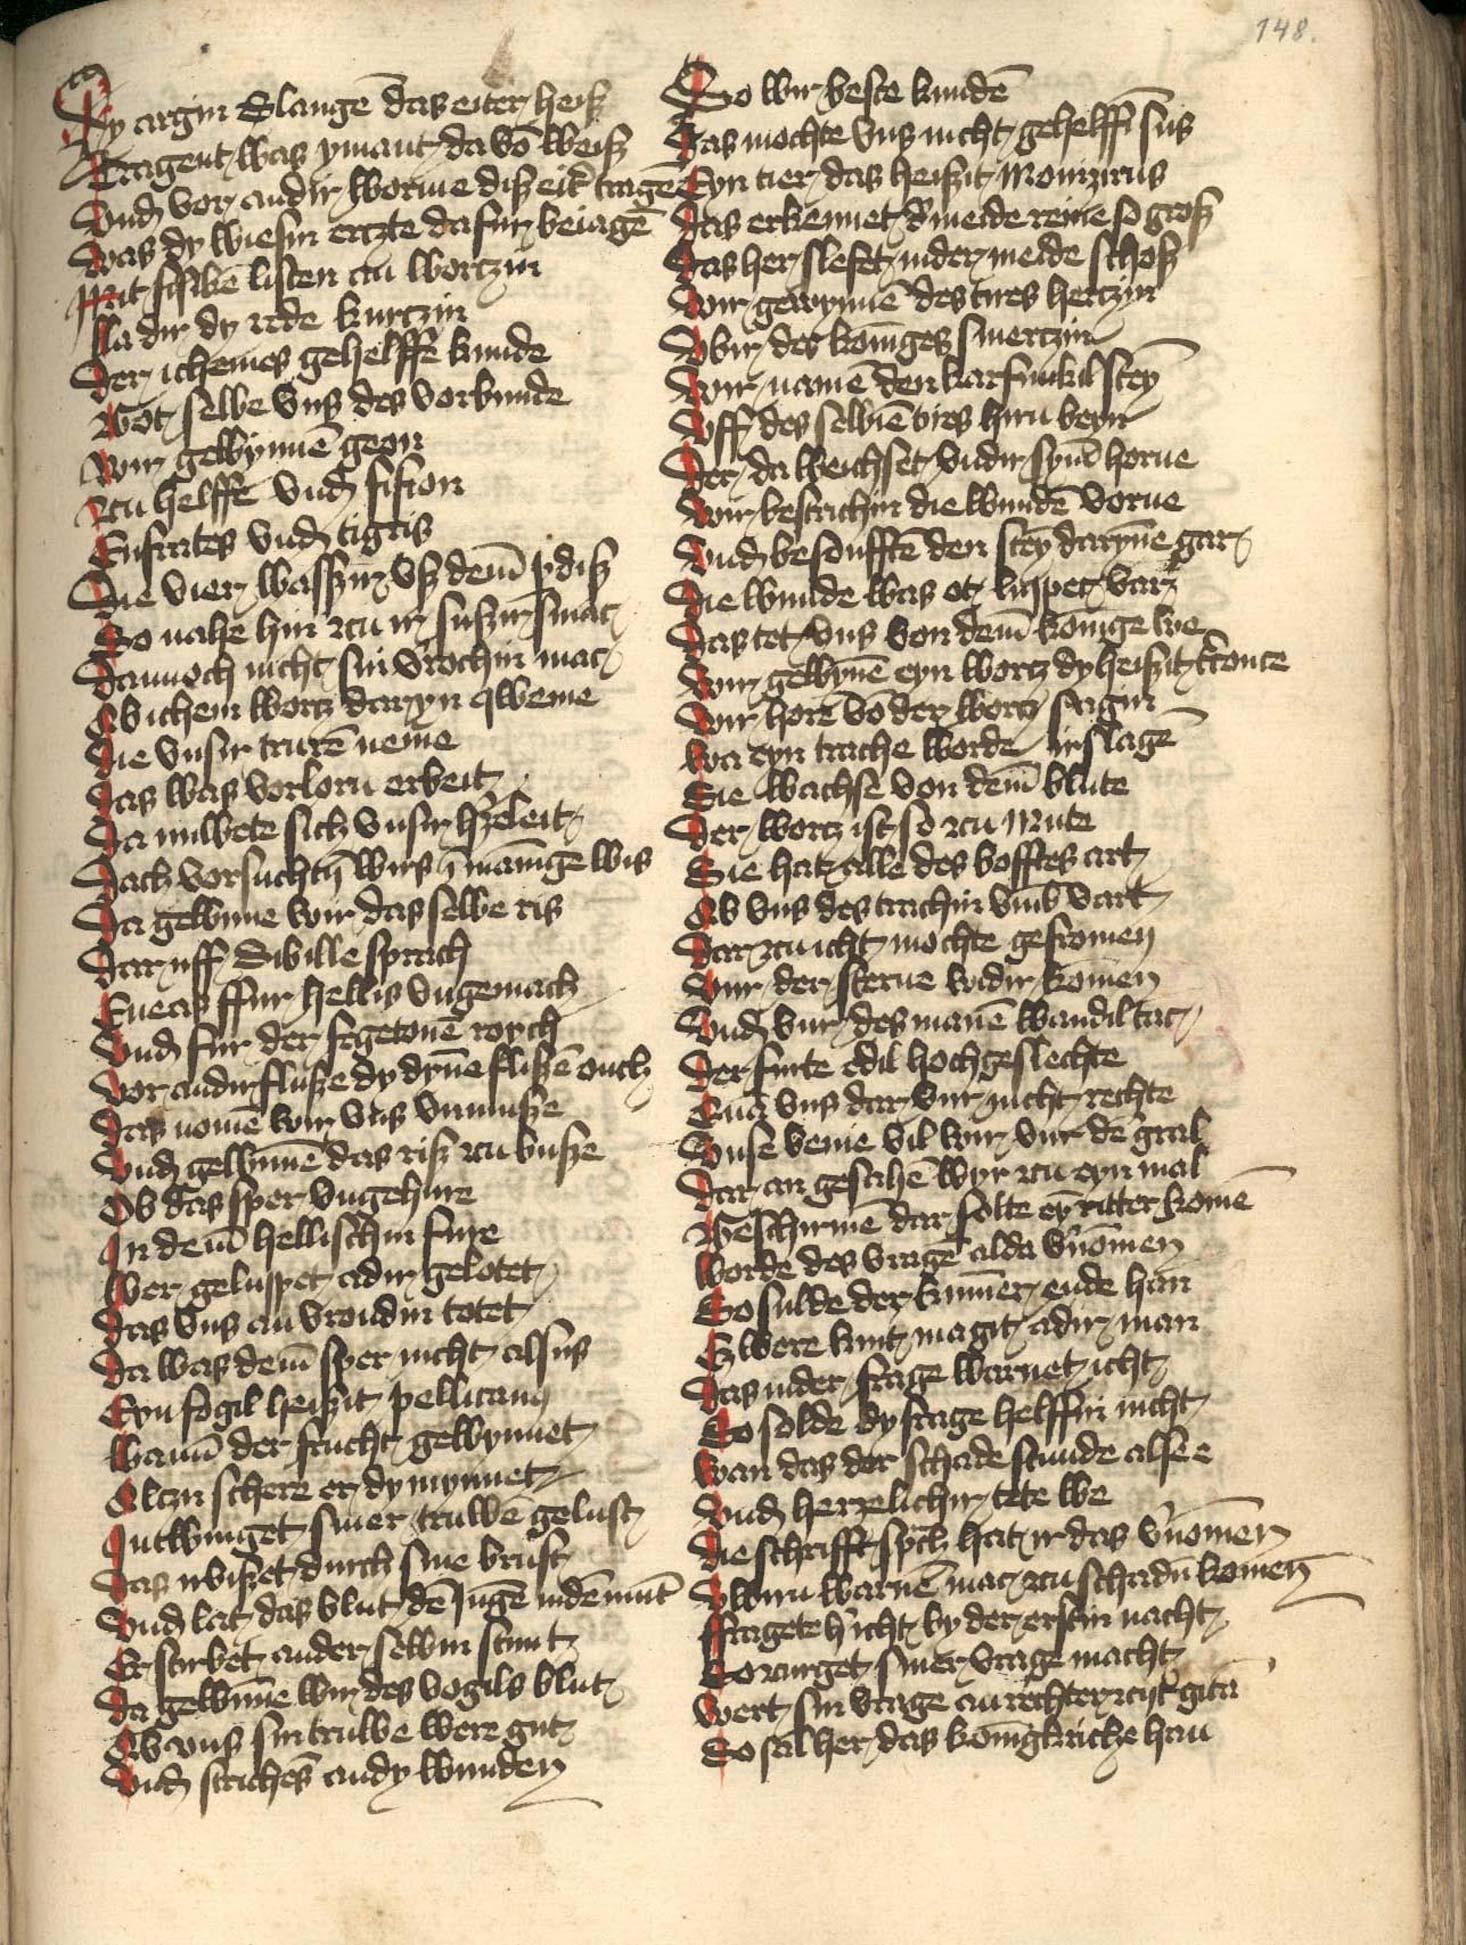 148.
Dy argin Slangē das eiter heiſz
Tragent was ymant da vō weiſz
Vnd vor andir worme diſz eit̄ tragē
Was dy wiesin erczte da fur beiagē
Mit fisikē listen an worczin
la dir dy rede kurczin
Der ichemes gehelffē kunde
Got selbe vns des vorkunde
Wir gewynnē geon
Zcu helffe vnd fision
Eufrates vnd tigris
Die vier wasszir vſz dem̄ pdiſz
So nahe hin zcu ir suszir smac
Dannoch nicht sin v̓rochin mac
Ab ichein worcz daryn qweme
Die vnsir trurē neme
Das was vorlorn erbeit
Da nuwete sich vnsir hr̓czeleit
Dach vorsuchtē wirs ī mānige wis
Da gewūne wir das selbe ris
Dar uff Sibille sprach
Eneas ffur hellis vngemach
Vnd fur der fegetonē roych
Vor andir flusze dy dyn̄e fliszē ouch
Das nomē wir vns vnmusze
Vnd gewūnē das riſz zcu busze
Ob das sper vngehure
In dem̄ hellischin fure
Wer geluppet adir gelotet
Das vns an vroudin totet
Da was dem̄ sper nicht alsus
Eyn fogil heiszit pellicanus
Wann̄ der frucht gewynnet
Alczu schere er dy mynnet
In twinget siner truwē gelust
Das ir biszet durch sine brust
Vnd lat das blut dē Jungē in dē munt
Er stirbet an der selbin stunt
Da gewūne wir des vogils blut
Ab vns sin truwe were gut
Vnd strichēs an dy wunden
So wir beste kundē
Das mochte vns nicht gehelffī sus
Eyn tier das heiszit Monizirus
Das erkennet d̓ meide reine so groſz
Das her slefet in der meide schoſz
Wir gewynnē des tires hertzin
Vbir des koniges smertzin
Wir namē den karfunkil stey
Vff des selbiē tires hirn beyn
Der da weichset vndir synē horne
Wir bestrichin die wundē vorne
Vnd besoufftē den stey daryn̄e gar
Die wunde was et luppec var
Das tet vns von dem̄ konige we
Wir gewynē eyn worcz dy heiszit tronte
Wir horē vō der worcz sagin
Wa eyn trache worde irslagē
Sie wachse von dem̄ blute
Der worcz ist so zcu Mute
Sie hat alle des lofftes art
Ab vns des trachin vmb vart
Dar zcu icht mochte gefromen
Vur der sterne widir komen
Vnd vur des manē wandil tac
Der furte edil hoch geslechte
Quā vns dar vur nicht rechte
Vnse venie vil wir vur dē gral
Dar an gesahē wyr zcu eyn mal
Geschirmē dar solte eȳ ritter komē
Worde des vragē alda v̓nomen
So sulde der kummer ende han
Ez were kint magit adir man
Das in der frage warnet icht
So solde dy frage helffin nicht
Wan das der schade stunde alse e
Vnd herzelichir tete we
Die schrifft spch̄ hat ir das v̓nomen
Vwirn warnē mac zcu schadn̄ komen
Fragete h̓ nicht by der erstin nacht
So zurget siner vrage macht
Wert sin vrage an rechter zcyt gitā
So sal her das konigkriche han